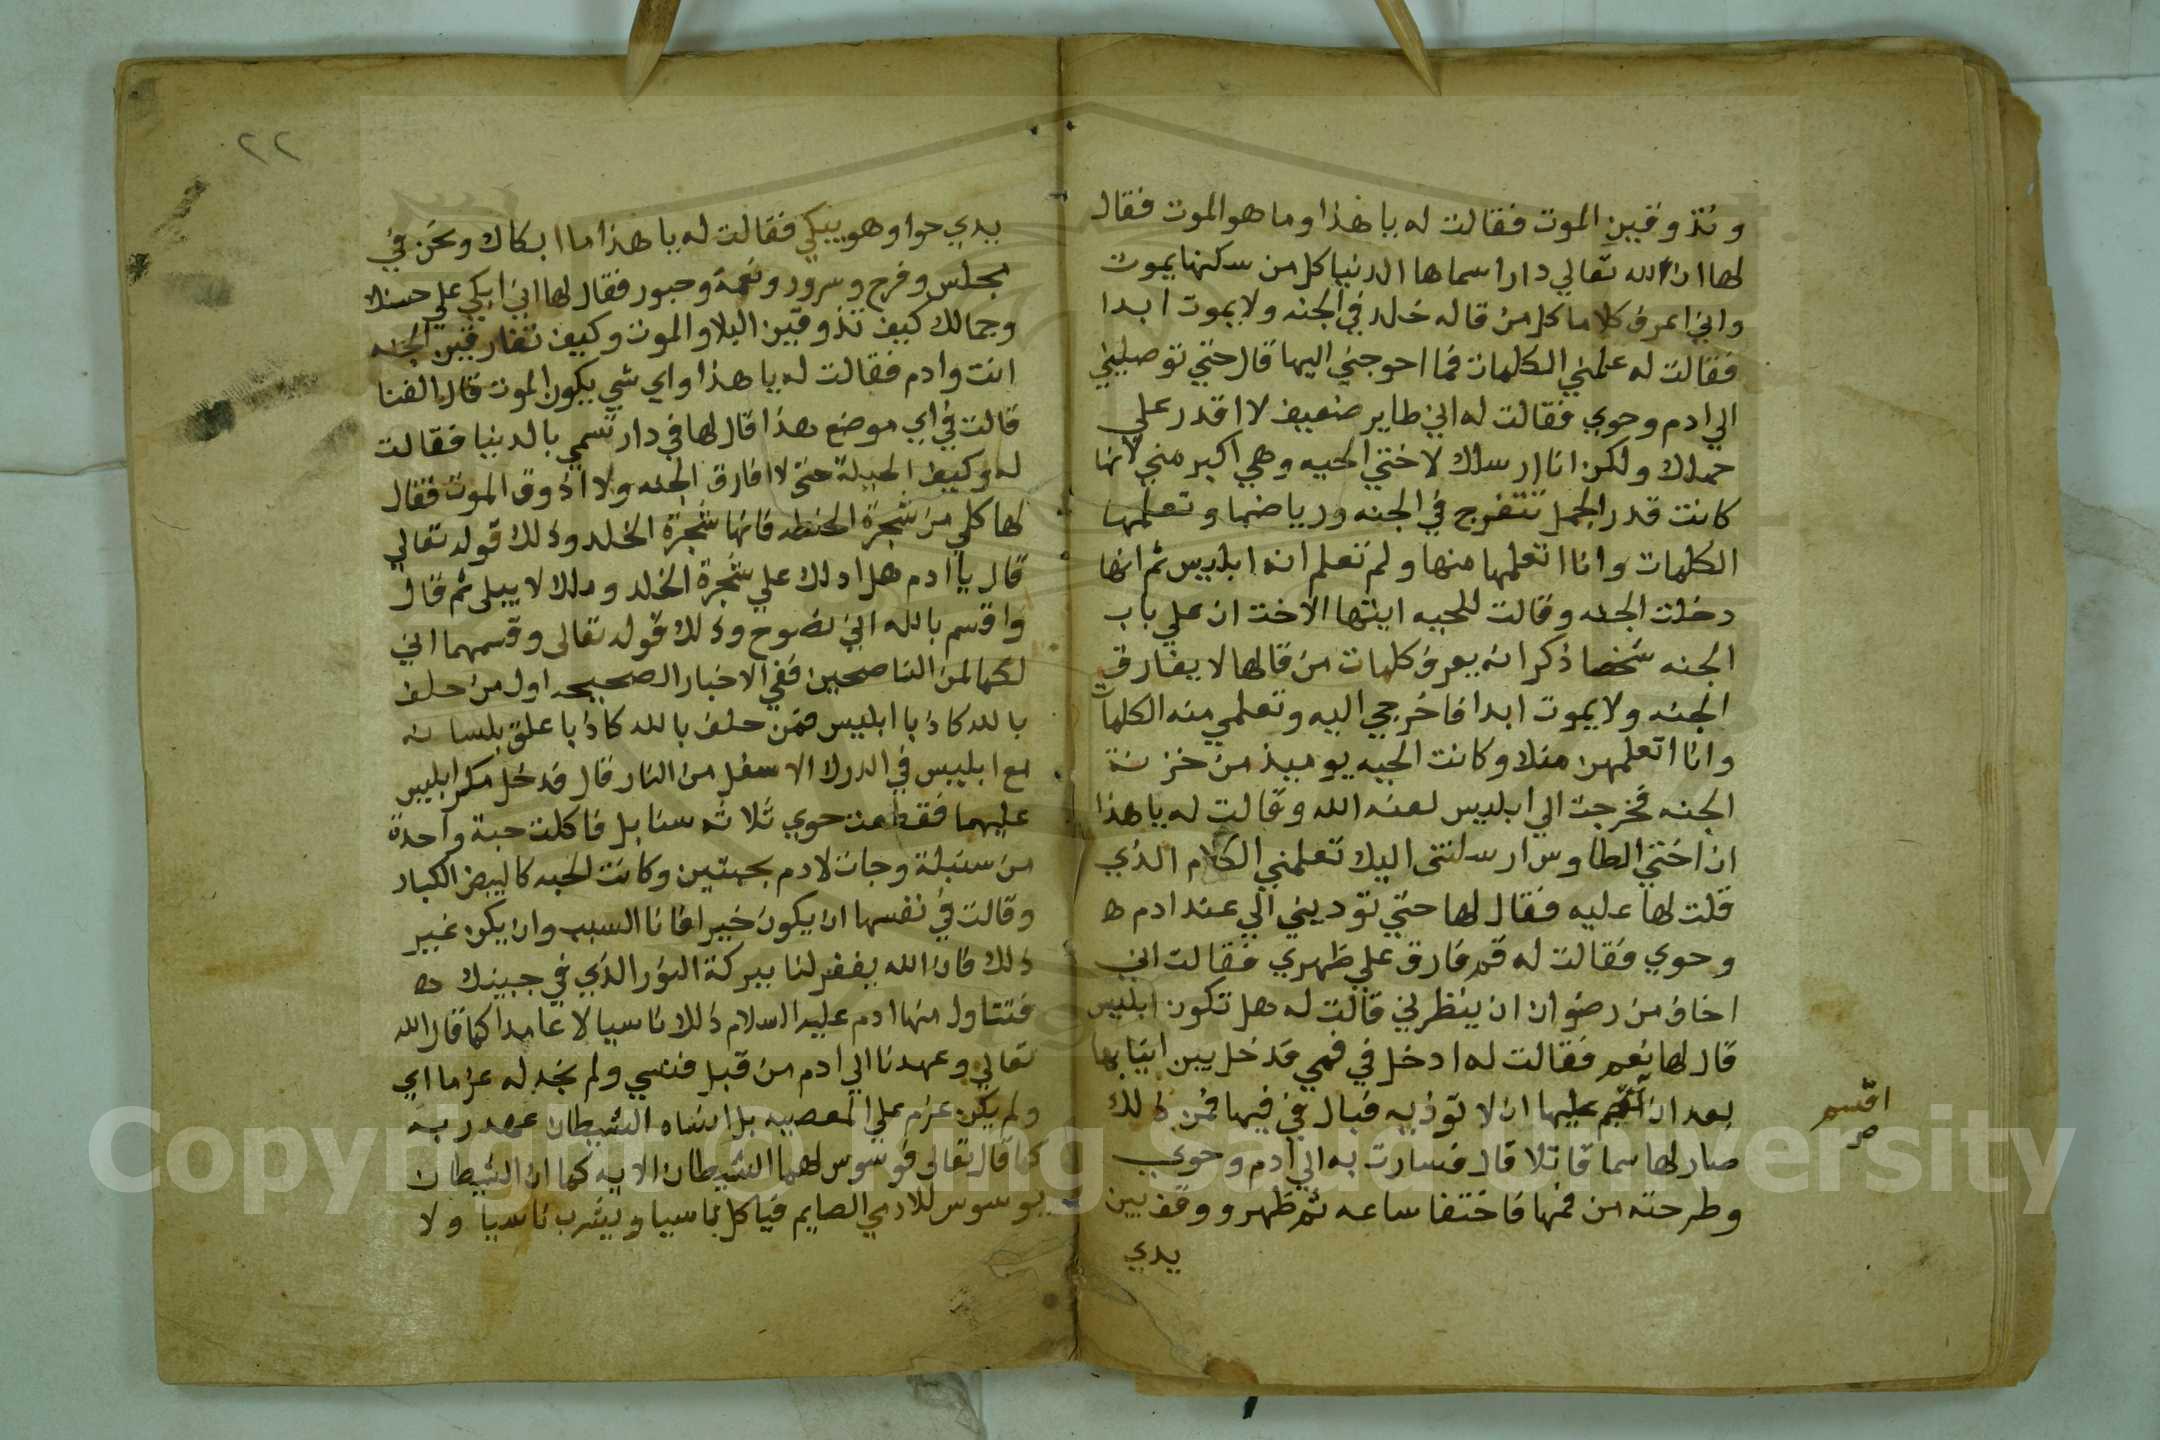 وتذوقين الموت فقالت له يا هذا وما هو الموت فقال
لها ان الله تعالي دارا سماها الدنيا كل من سكنها يموت
واني اعرف كلاما كل من قاله خلد في الجنه ولا يموت ابدا
فقالت له علمني الكلمات فما احوجني اليها قال حتي توصليني
الي ادم وحوي فقالت له اني طاير ضعيف لا اقدر علي
حملك ولكن انا ارسلك لاختي الحيه وهي اكبر مني لانها
كانت قدر الجمل تتفرج في الجنه ورياضها وتعلمها
الكلمات وانا اتعلمها منها ولم تعلم انه ابليس ثم انها
دخلت الجنه وقالت للحيه ايتها الاخت ان علي باب
الجنه شخصا ذكر انه يعرف كلمات من قالها لا يفارق
الجنه ولا يموت ابدا فاخرجي اليه وتعلمي منه الكلمات
وانا اتعلمهن منك وكانت الحيه يوميذ من خزنة
الجنه فخرجت الي ابليس لعنه الله وقالت له يا هذا
ان اختي الطاوس ارسلتني اليك تعلمني الكلام الذي
قلت لها عليه فقال لها حتي توديني الي عند ادم ه
وحوي فقالت له قم فارق علي ظهري فقالت اني
اخاف من رضوان ان ينظرني قالت له هل تكون ابليس
قال لها نعم فقالت له ادخل في فمي فدخل بين انيابها
بعد ان عليها ان لا توذيه فبال في فيها فمن ذلك
اقسم
صح
صار لها سما قاتلا قال فسارت به الي ادم وحوي
وطرحته من فمها فاختفا ساعه ثم ظهر ووقف بين
يدي
٢٢
يدي حوا وهو يبكي فقالت له يا هذا ما ابكاك ونحن في
مجلس وفرح وسرور ونعمة وحبور فقال لها اني ابكي علي حسنك
وجمالك كيف تذوقين البلا والموت وكيف تفارقين الجنه
انت وادم فقالت له يا هذا واي شي يكون الموت قال الفنا
قالت في اي موضع هذا قال لها في دار تسمي بالدنيا فقالت
له وكيف الحيلة حتي لا افارق الجنه ولا اذوق الموت فقال
لها كلي من شجرة الحنطه فانها شجرة الخلد وذلك قوله تعالي
قال يا ادم هل ادلك علي شجرة الخلد وملك لا يبلى ثم قال
واقسم بالله اني نصوح وذلك قوله تعالى وقسمهما اني
لكما لمن الناصحين ففي الاخبار الصحيحه اول من حلف
بالله كاذبا ابليس فمن حلف بالله كاذبا علق بلسانه
مع ابليس في الدرك الاسفل من النار قال فدخل مكر ابليس
عليهما فقطعت حوي ثلاثه سنابل فاكلت حبة واحدة
من سنبلة وجات لادم بحبتين وكانت الحبه كالبيض الكبار
وقالت في نفسها ان يكون خيرا فانا السبب وان يكن غير
ذلك فان الله يغفر لنا ببركة النور الذي في جبينك ه
فتناول منها ادم عليه السلام ذلك ناسيا لا عامدا كما قال الله
تعالي وعهدنا الي ادم من قبل فنسي ولم نجد له عزما اي
ولم يكن عزم علي المعصيه بل انساه الشيطان عهد ربه
كما قال تعالى فوسوس لهما الشيطان الايه كما ان الشيطان
يوسوس للادمي الصايم فياكل ناسيا ويشرب ناسيا ولا
Copyright © King Saud University